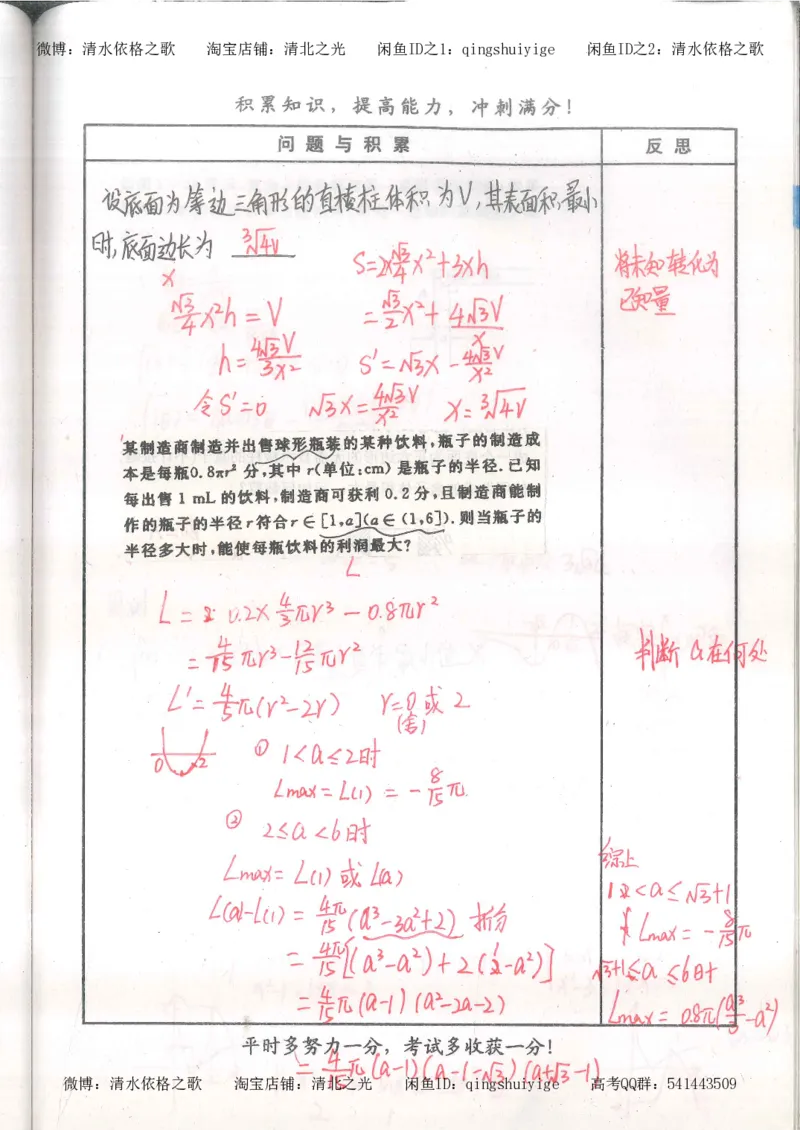 微博：清水依格之歌 淘宝店铺：清北之光 闲鱼ID之1：qingshuiyige 闲鱼ID之2：清水依格之歌
积累知识，提高能力，冲刺满分！
问题与积累 反思
设底面为等边三角形的直棱柱体积为V，其表面积最小
时，底面边长为 ∛4V
x
S=2×√3/4x²+3xh
将未知转化为
已知量
√3/4x²h=V
=√3/2x²+4√3V/x
h=4√3V/3x²
S'=√3x-4√3V/x²
令S'=0 √3x=4√3V/x² x=∛4V
某制造商制造并出售球形瓶装的某种饮料，瓶子的制造成
本是每瓶0.8πr²分，其中r(单位:cm)是瓶子的半径．已知
每出售1 mL的饮料，制造商可获利0.2分，且制造商能制
作的瓶子的半径r符合r∈[1,a](a∈(1,6])．则当瓶子的
半径多大时，能使每瓶饮料的利润最大?
L
L=0.2×4/3πr³-0.8πr²
=4/15πr³-12/15πr²
判断a在何处
L'=4/5π(r²-2r) r=0或2
(舍)
0 2
① 1<a≤2时
Lmax=L(1)=-8/15π
② 2≤a<6时
Lmax=L(1)或L(a)
L(a)-L(1)=4π/15(a³-3a²+2) 拆分
=4π/15[(a³-a²)+2(1-a²)]
=4/15π(a-1)(a²-2a-2)
综上
1<a≤√3+1
Lmax=-8/15π
√3+1≤a≤6时
Lmax=0.8π(a³/3-a²)
平时多努力一分，考试多收获一分！
=4/15π(a-1)(a-1-√3)(a+√3-1)
微博：清水依格之歌 淘宝店铺：清北之光 闲鱼ID：qingshuiyige 高考QQ群：541443509